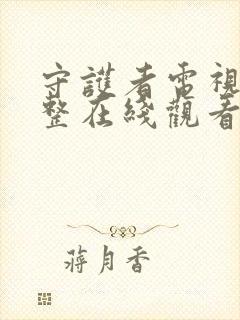 守護者電視
整在綫觀看
蔣月香